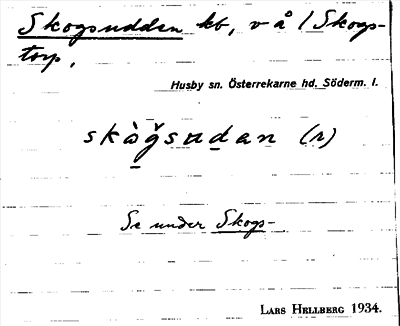 Skogsudden kb, v å / Skogs-
torp.
Husby sn. Österrekarne hd. Söderm. l.
skò̠ǧsud̠an (r)
Se under Skogs-
LARS HELLBERG 1934.